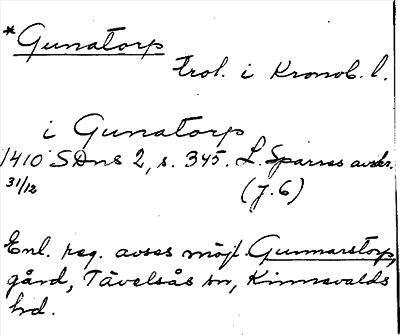 *Gunatorp
trol. i Kronob. l.
i Gunatorp
1410 SDns 2, s. 345. L. Sparres avskr.
31/12 (J. 6)
Enl. reg. avses möjl. Gunnarstorp,
gård, Tävelsås sn, Kinnevalds
hd.